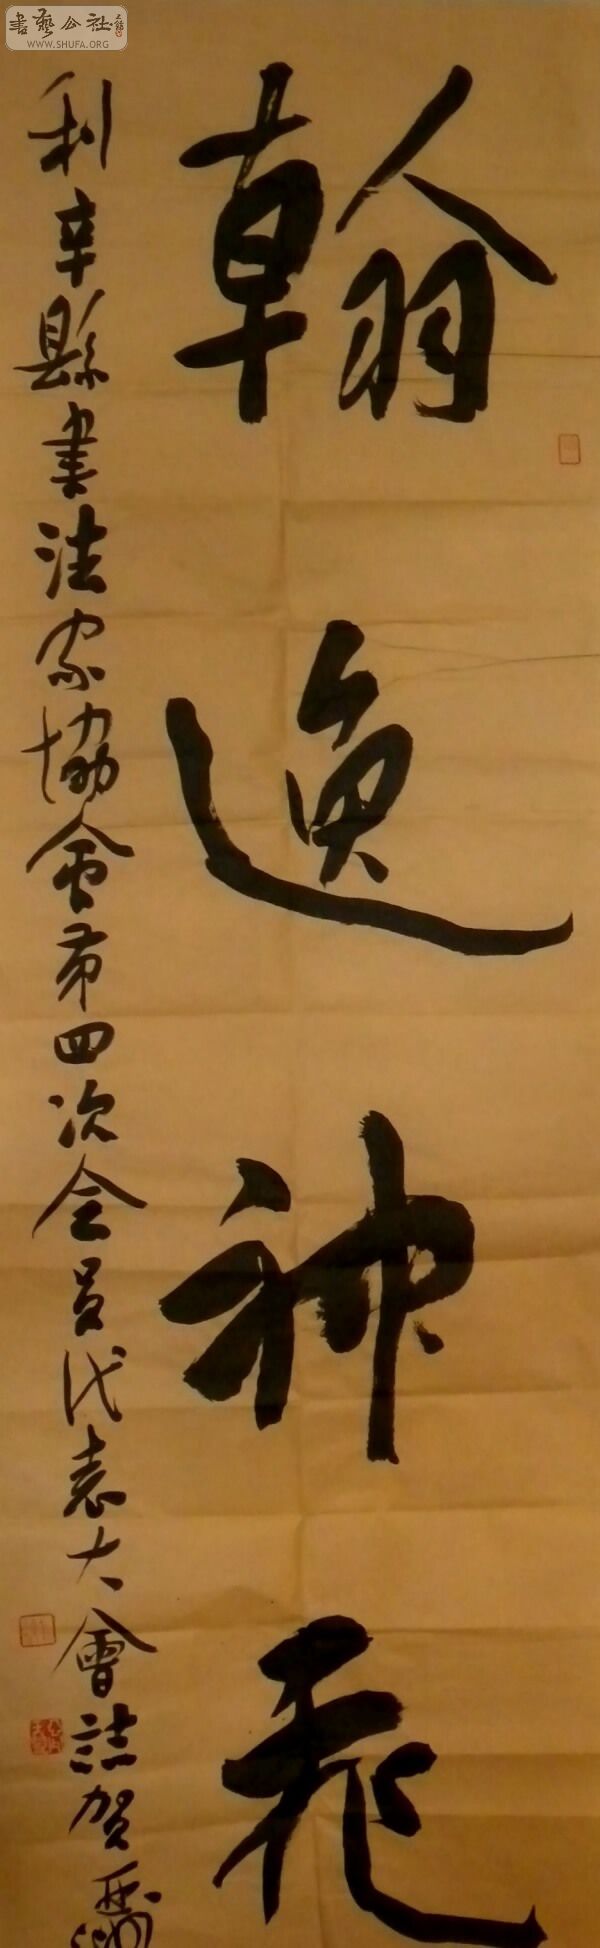 書藝公社
WWW.SHUFA.ORG
翰逸神飛
利辛縣書法家協會第四次会員代表大會誌賀